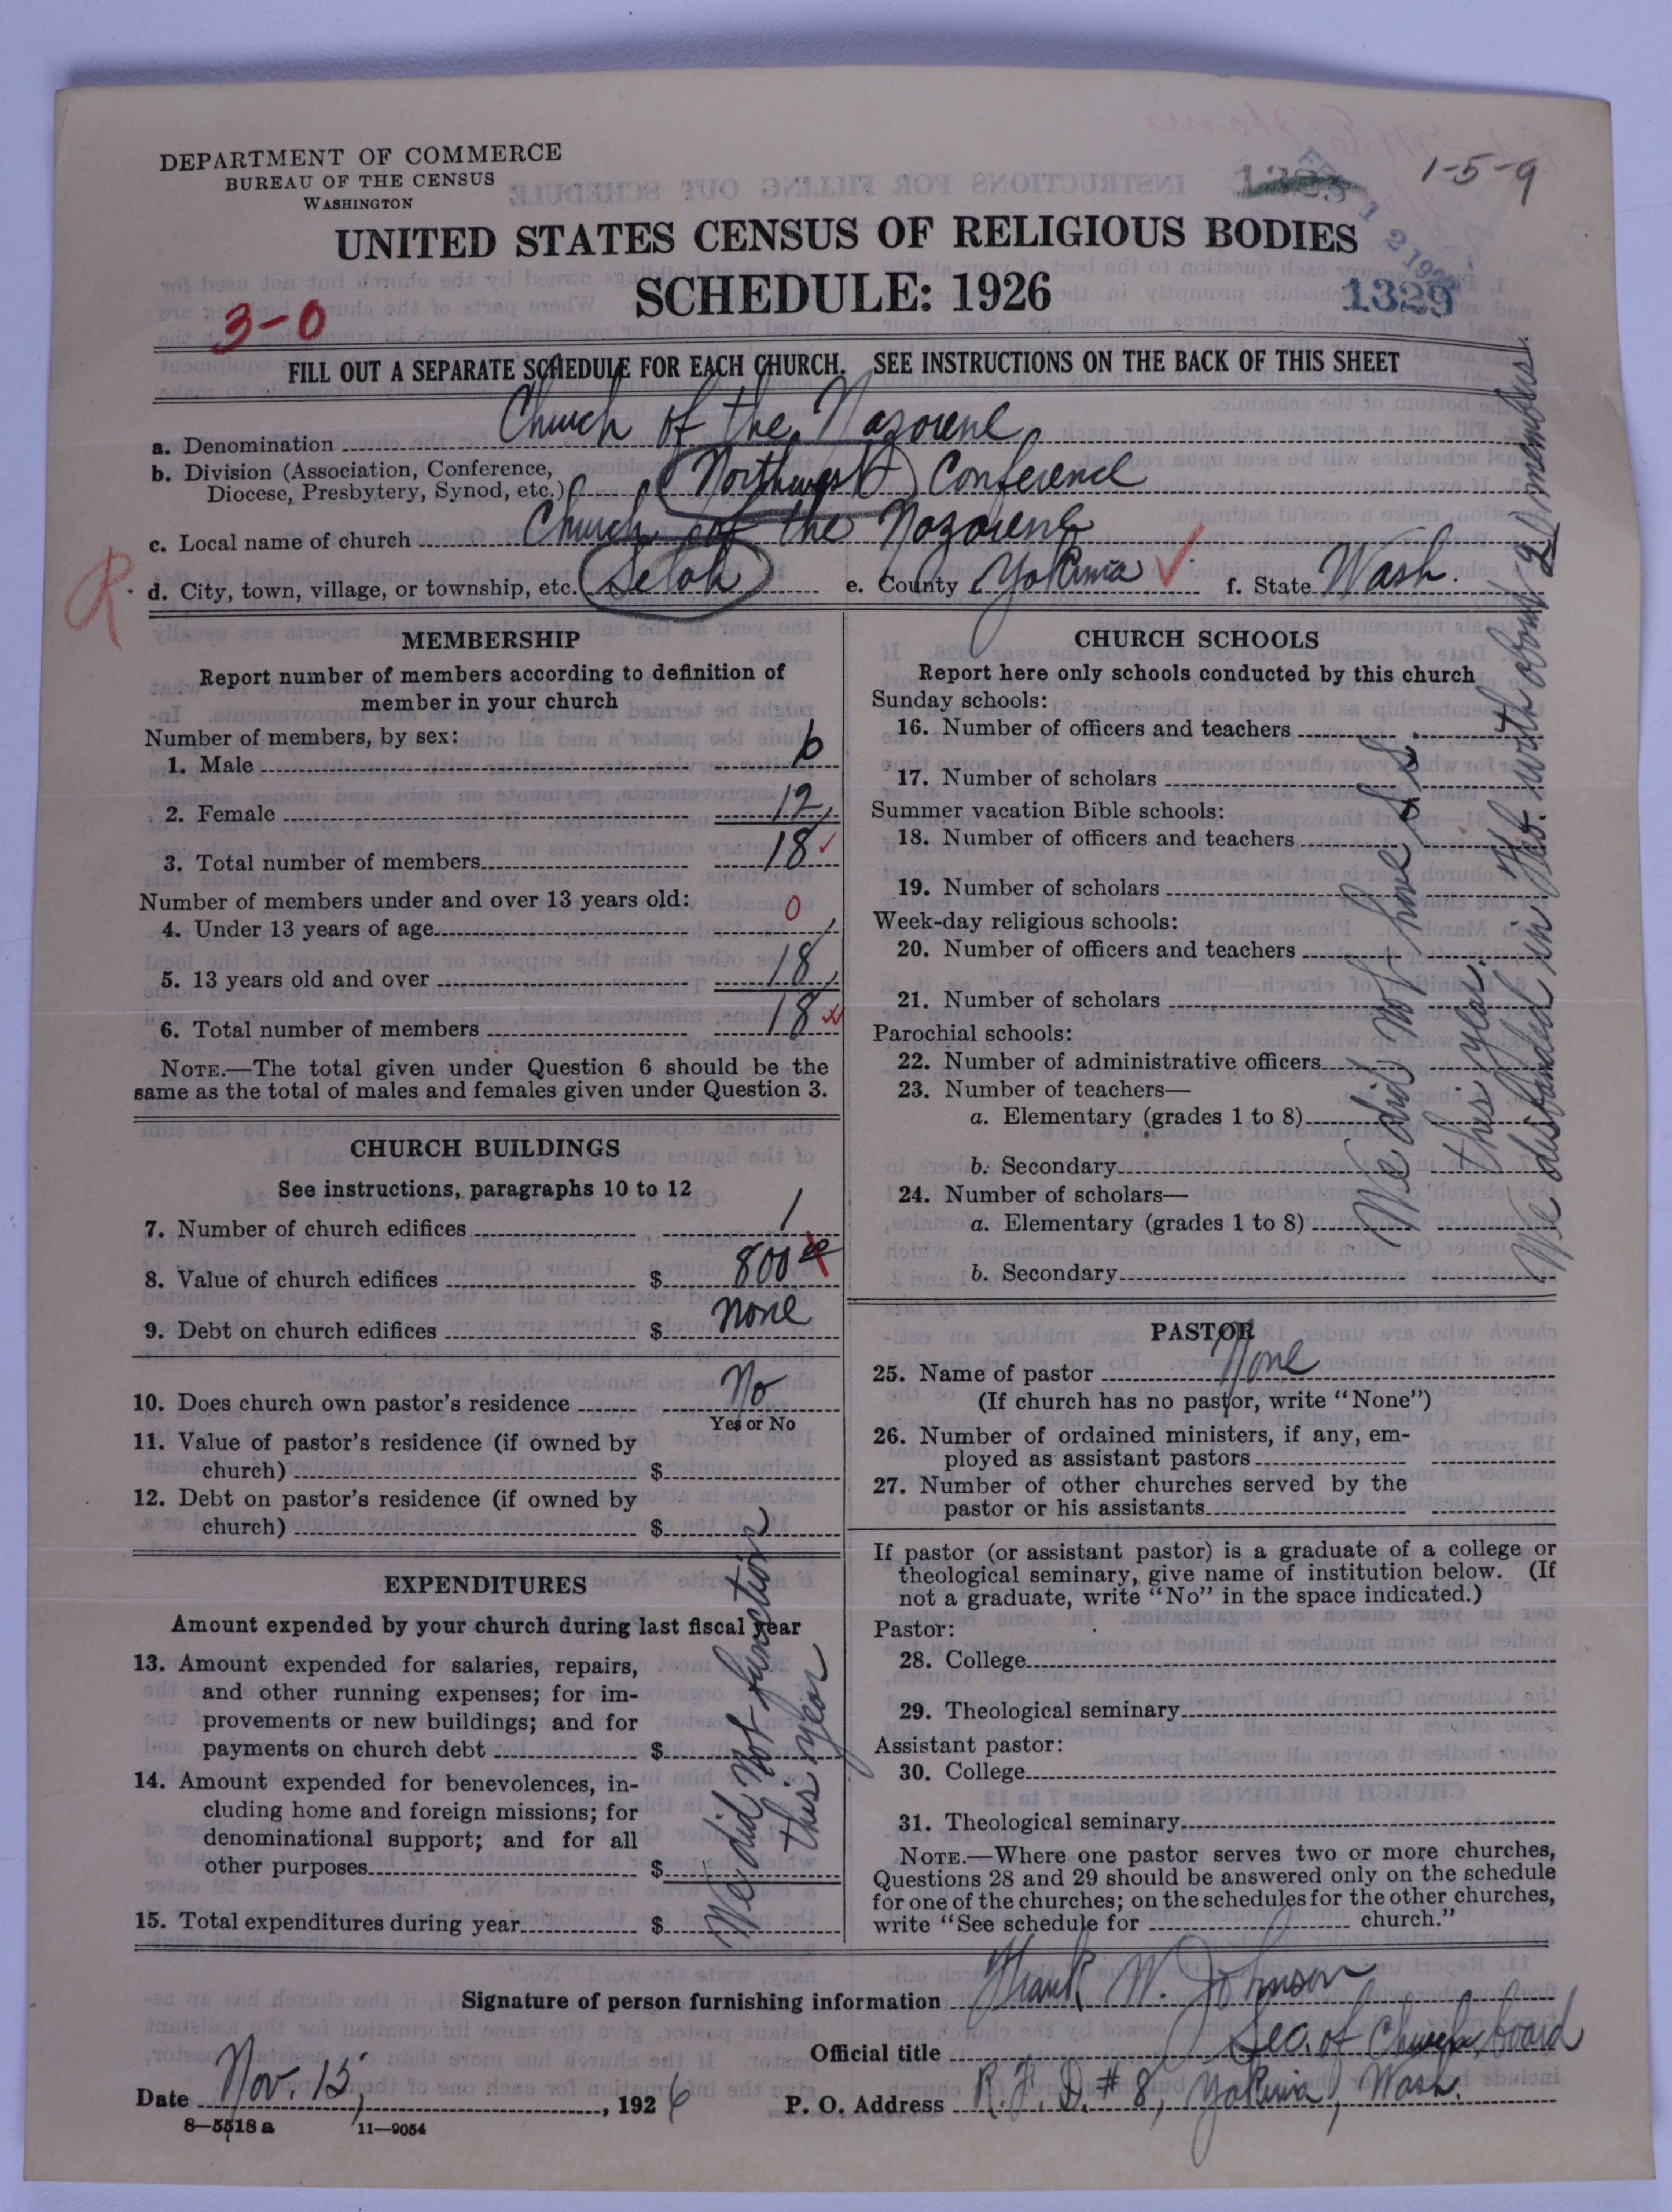 DEPARTMENT OF COMMERCE
BUREAU OF THE CENSUS
WASHINGTON
1-5-9
UNITED STATES CENSUS OF RELIGIOUS BODIES
SCHEDULE: 1926
1329
3-0
FILL OUT A SEPARATE SCHEDULE FOR EACH CHURCH. SEE INSTRUCTIONS ON THE BACK OF THIS SHEET
a. Denomination Church of the Nazarene
b. Division (Association, Conference,
Diocese, Presbytery, Synod, etc.) (Northwest) Conference
c. Local name of church Church of the Nazarene
R
d. City, town, village, or township, etc. Selah e. County Yakima f. State Wash.
MEMBERSHIP
Report number of members according to definition of
member in your church
Number of members, by sex:
1. Male 6
2. Female 12
3. Total number of members 18
Number of members under and over 13 years old:
4. Under 13 years of age 0
5. 13 years old and over 18
6. Total number of members 18
NOTE.—The total given under Question 6 should be the
same as the total of males and females given under Question 3.
CHURCH BUILDINGS
See instructions, paragraphs 10 to 12
7. Number of church edifices 1
8. Value of church edifices $ 800 00
9. Debt on church edifices $ None
10. Does church own pastor's residence No
Yes or No
11. Value of pastor's residence (if owned by
church) $
12. Debt on pastor's residence (if owned by
church) $
EXPENDITURES
Amount expended by your church during last fiscal year
13. Amount expended for salaries, repairs,
and other running expenses; for im-
provements or new buildings; and for
payments on church debt $
14. Amount expended for benevolences, in-
cluding home and foreign missions; for
denominational support; and for all
other purposes $
15. Total expenditures during year $
We did not function
this year
CHURCH SCHOOLS
Report here only schools conducted by this church
Sunday schools:
16. Number of officers and teachers
17. Number of scholars
Summer vacation Bible schools:
18. Number of officers and teachers
19. Number of scholars
Week-day religious schools:
20. Number of officers and teachers
21. Number of scholars
Parochial schools:
22. Number of administrative officers
23. Number of teachers—
a. Elementary (grades 1 to 8)
b. Secondary
24. Number of scholars—
a. Elementary (grades 1 to 8)
b. Secondary
We did not have S. S.
this year.
We disbanded in Feb. with about 21 members.
PASTOR
25. Name of pastor None
(If church has no pastor, write "None")
26. Number of ordained ministers, if any, em-
ployed as assistant pastors
27. Number of other churches served by the
pastor or his assistants
If pastor (or assistant pastor) is a graduate of a college or
theological seminary, give name of institution below. (If
not a graduate, write "No" in the space indicated.)
Pastor:
28. College
29. Theological seminary
Assistant pastor:
30. College
31. Theological seminary
NOTE.—Where one pastor serves two or more churches,
Questions 28 and 29 should be answered only on the schedule
for one of the churches; on the schedules for the other churches,
write "See schedule for church."
Signature of person furnishing information Frank W. Johnson
Official title Sec. of Church board
Date Nov. 15, 1926 P. O. Address R.F.D. #8, Yakima, Wash.
8—5518 a 11—9054